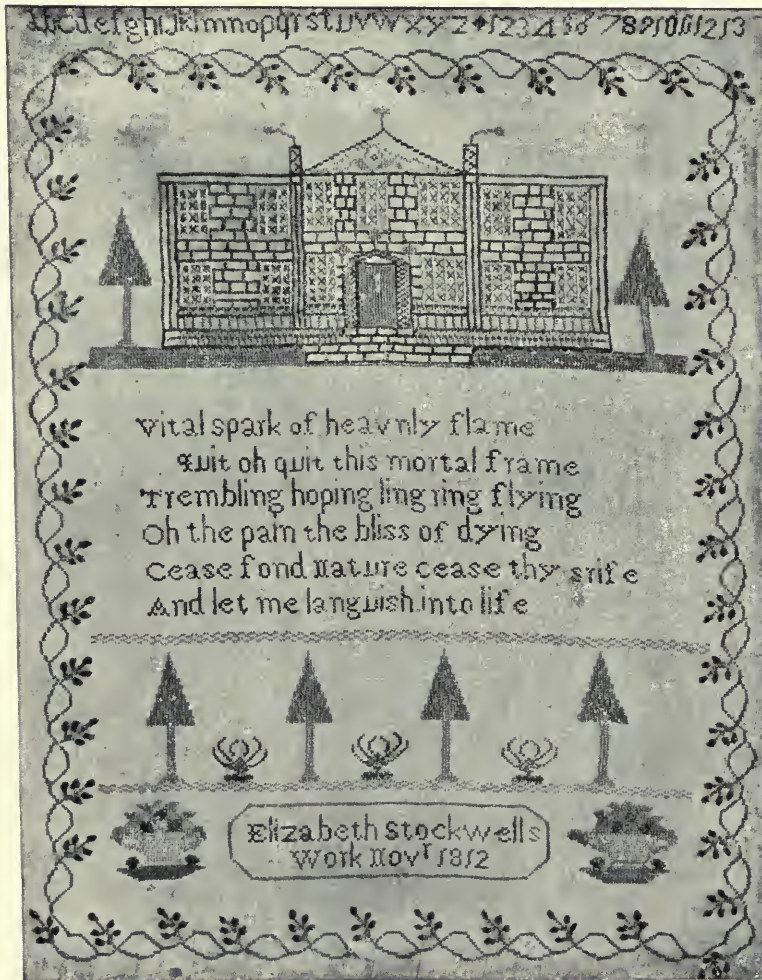 Abcdefghijklmnopqrstuvwxyz 12345678910111213
Vital spark of heavnly flame
Quit oh quit this mortal frame
Trembling hoping lingring flying
Oh the pain the bliss of dying
Cease fond Nature cease thy srife
And let me languish into life
Elizabeth Stockwells
Work Novr 1812